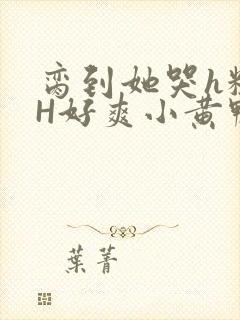 脔到她哭h
H好爽小黄
葉菁